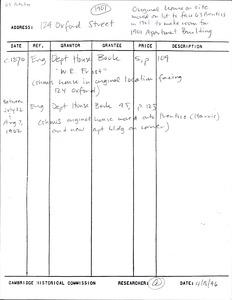 1901
Original house on site
moved on lot to face 65 Prentiss
in 1901 to make room for
1901 Apartment Building
ADDRESS: 124 Oxford Street
DATE REF. GRANTOR GRANTEE PRICE DESCRIPTION
c.1870 Eng Dept House Book 5, p 109
"W.R. Frost"
(shows house in original location facing
124 Oxford)
between Eng Dept House Book 45, p 125
July 22
(shows original house moved onto Prentice (Harris)
Aug 7,
and new apt bldg on corner)
1902
CAMBRIDGE HISTORICAL COMMISSION RESEARCHER: DATE: 4/5/96